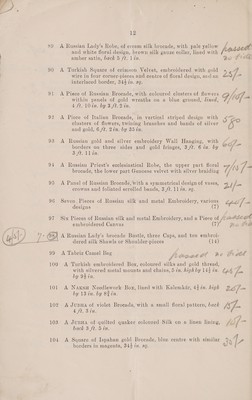 12
89 A Russian Lady's Robe, of cream silk brocade, with pale yellow
and white floral design, brown silk gauze collar, lined with
amber satin, 3 ft. 1 in.
90 A Turkish Square of crimson Velvet, embroidered with gold
wire in four corner-pieces and centre of floral design, and an
interlaced border, 34½ in. sq. 25/-
91 A Piece of Russian Brocade, with coloured clusters of flowers
within panels of gold wreaths on a blue ground, lined,
4 ft. 10 in. by 2 ft. 2 in.
92 A Piece of Italian Brocade, in vertical striped design with
clusters of flowers, twining branches and bands of silver
and gold, 6 ft. 2 in. by 23 in.
93 A Russian gold and silver embroidery Wall Hanging, with
borders on three sides and gold fringes, 3 ft. 8 in. by
3 ft. 11 in.
94 A Russian Priest's ecclesiastical Robe, the upper part floral
brocade, the lower part Genoese velvet with silver braiding
95 A Panel of Russian Brocade, with a symmetrical design of vases,
crowns and foliated scrolled bands, 2 ft. 11 in. sq.
96 Seven Pieces of Russian silk and metal Embroidery, various
designs (7)
97 Six Pieces of Russian silk and metal Embroidery, and a Piece of
embroidered Canvas (7)
98 A Russian Lady's brocade Bustle, three Caps, and ten embroi-
dered silk Shawls or Shoulder-pieces (14)
99 A Fabric Casual Bag passed no bid
100 A Turkish embroidered Box, coloured silks and gold thread,
with silvered metal mounts and chains, 5 in. high by 11½ in.
by 9¾ in.
101 A Narrow Needlework Box, lined with Kalemkár, 4¾ in. high
by 13 in. by 9¾ in.
102 A Jubba of violet Brocade, with a small floral pattern,
4 ft. 3 in. 15/-
103 A Jubba of quilted quaker coloured Silk on a linen lining,
3 ft. 3 in.
104 A Square of Ispahan gold Brocade, blue centre with similar
borders in magenta, 34½ in. sq.